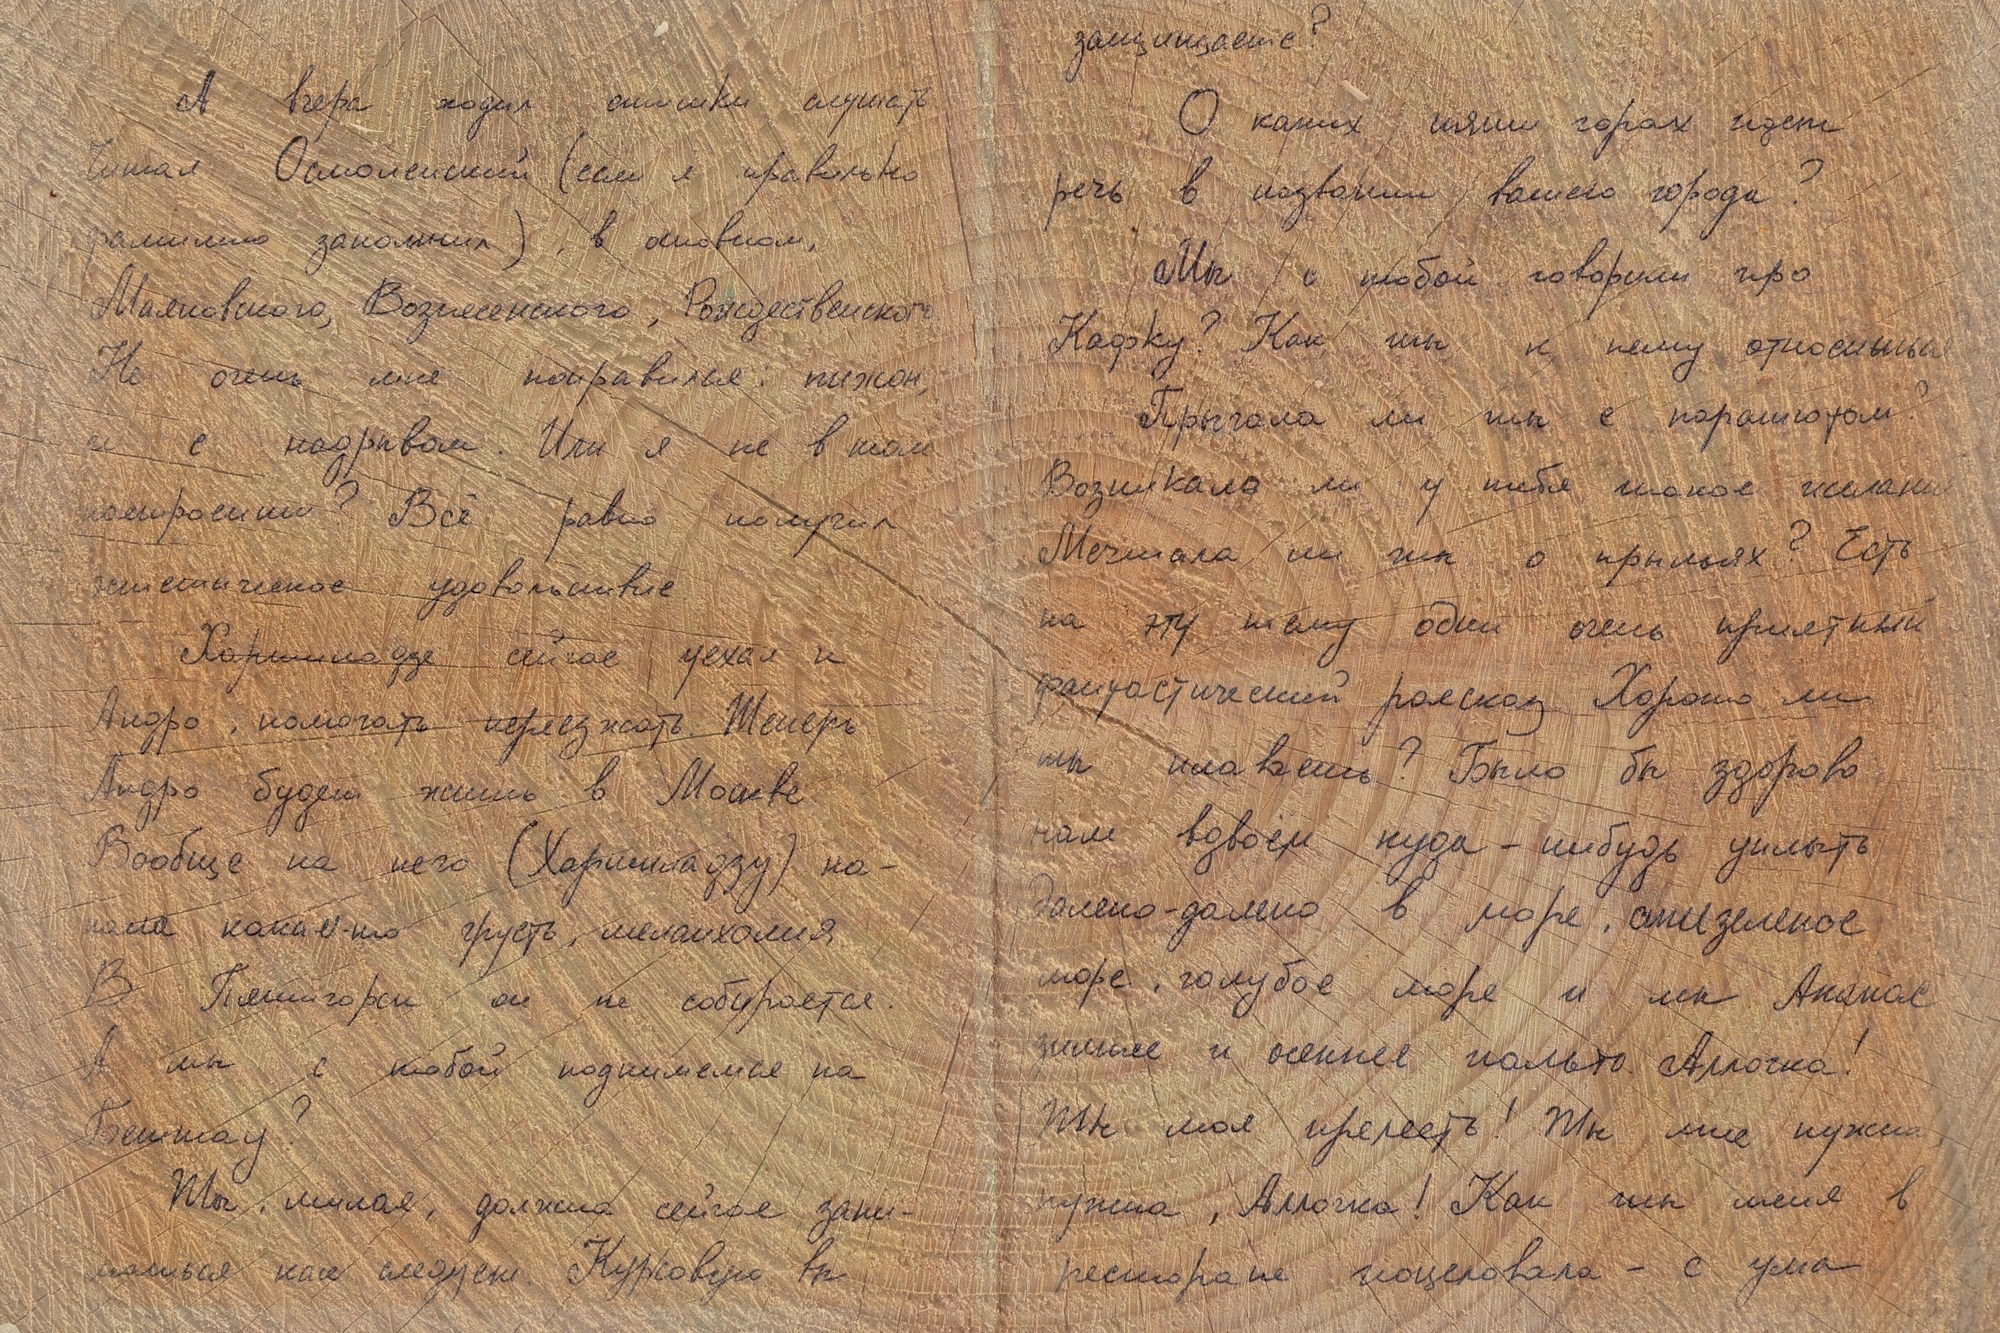 А вчера ходил стишки слушать
Читал Осмоленский (если я правильно
фамилию запомнил), в основном,
Маяковского, Вознесенского, Рождественского.
Не очень мне понравился: пижон,
и с надрывом. Или я не в том
настроении? Всё равно получил
эстетическое удовольствие
Харшиладзе сейчас уехал к
Андро, помогать переезжать. Теперь
Андро будет жить в Москве
Вообще на него (Харшиладзу) на-
пала какая-то грусть, меланхолия
В Пятигорск он не собирается.
А мы с тобой поднимемся на
Бештау?
Ты, милая, должна сейчас зани-
маться как следует. Курсовую вы
защищаете?
О каких пяти горах идет
речь в названии вашего города?
Мы с тобой говорили про
Кафку? Как ты к нему относишься
Прыгала ли ты с парашютом?
Возникало ли у тебя такое желание
Мечтала ли ты о крыльях? Есть
на эту тему один очень приятный
фантастический рассказ Хорошо ли
ты плаваешь? Было бы здорово
нам вдвоём куда-нибудь уплыть
Далеко-далеко в море, зеленое
море, голубое море и мы
зимнее и осеннее пальто. Аллочка!
Ты моя прелесть! Ты мне нужна
нужна, Аллочка! Как ты меня в
ресторане поцеловала - с ума